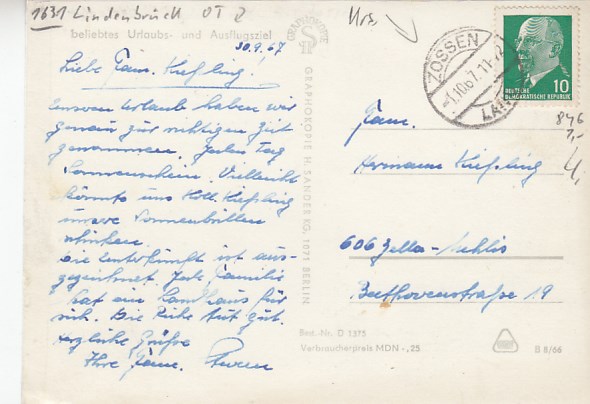 1631 Lindenbrück OT Z
beliebtes Urlaubs- und Ausflugsziel
30.9.67
Liebe Fam. Kießling!
Unseren Urlaub haben wir
genau zur richtigen Zeit
genommen. Jeden Tag
Sonnenschein. Vielleicht
könnte uns Koll. Kießling
unsere Sonnenbrillen
schicken.
Die Unterkunft ist aus-
gezeichnet. Jede Familie
hat ein Landhaus für
sich. Die Ruhe tut gut.
Herzliche Grüße
Ihre Fam.
GRAPHOKOPIE
GRAPHOKOPIE H. SANDER KG, 1071 BERLIN
ZOSSEN
-1.10.67.11-
10
DEUTSCHE
DEMOKRATISCHE REPUBLIK
846
1,-
4,
Fam.
Hermann Kießling
606 Zella-Mehlis
Beethovenstraße 19
Best.-Nr. D 1375
Verbraucherpreis MDN -,25
B 8/66